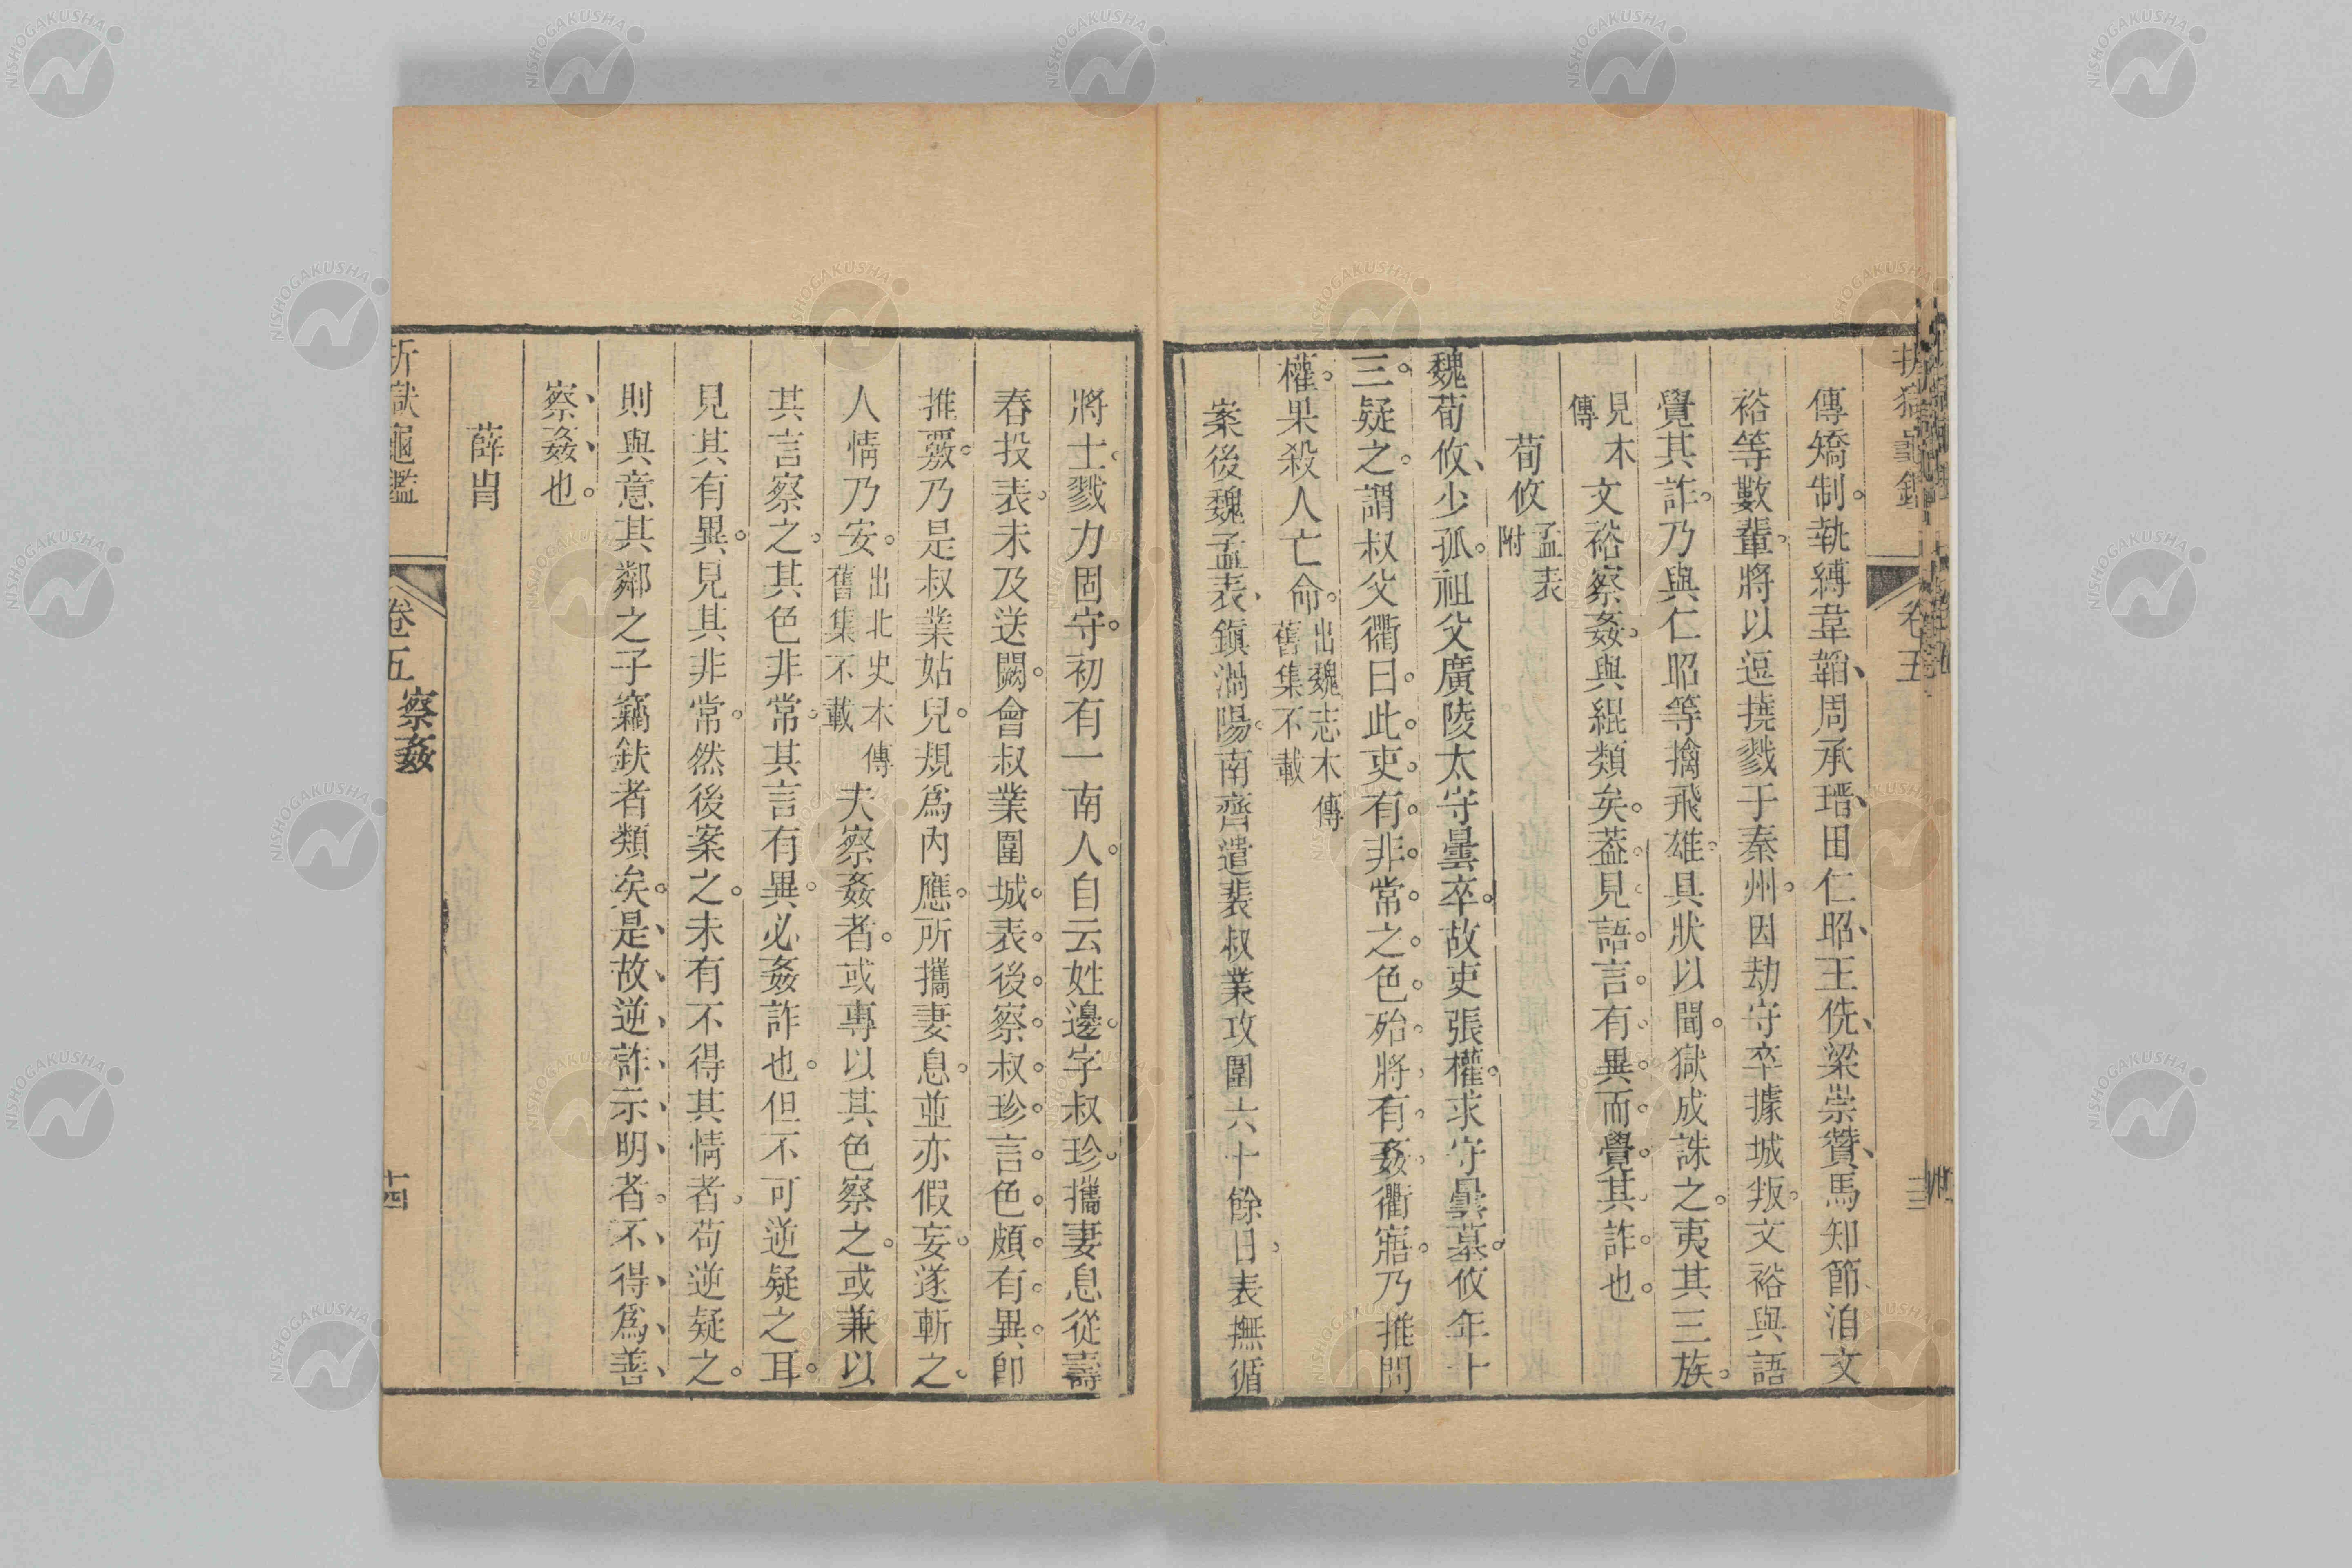 傳矯制。執縛韋韜、周承瑨、田仁昭、王侁、梁崇贊、馬知節洎文
裕等數輩。將以逗撓戮于秦州。因劫守卒據城叛。文裕與語
覺其詐。乃與仁昭等擒飛雄。具狀以聞。獄成誅之。夷其三族。
見本傳 文裕察姦。與緄類矣。蓋見語。言。有。異。而。覺。其。詐。也。
荀攸 孟表附
魏荀攸、少孤。祖父廣陵太守曇卒。故吏張權。求守曇墓。攸年十
三。疑之。謂叔父衢曰。此。吏。有。非。常。之。色。殆。將。有。姦。衢寤。乃推問
權。果殺人亡命。出魏志本傳舊集不載
案後魏孟表、鎮渦陽。南齊遣裴叔業攻圍六十餘日。表撫循
將士。戮力固守。初有一南人。自云姓邊。字叔珍。攜妻息從壽
春投表。未及送闕。會叔業圍城。表。後。察。叔。珍。言。色。頗。有。異。卽
推覈。乃是叔業姑兒。規爲內應。所攜妻息。並亦假妄。遂斬之。
人情乃安。出北史本傳舊集不載 夫察姦者。或專以其色察之。或兼以
其言察之。其色非常。其言有異。必姦詐也。但不可逆疑之耳。
見其有異。見其非常。然後案之。未有不得其情者。苟逆疑之。
則與意其鄰之子竊鈇者類矣。是、故、逆、詐、示、明、者、不、得、爲、善、
察、姦、也。
薛胄
折獄龜鑑
卷五 察姦
十四